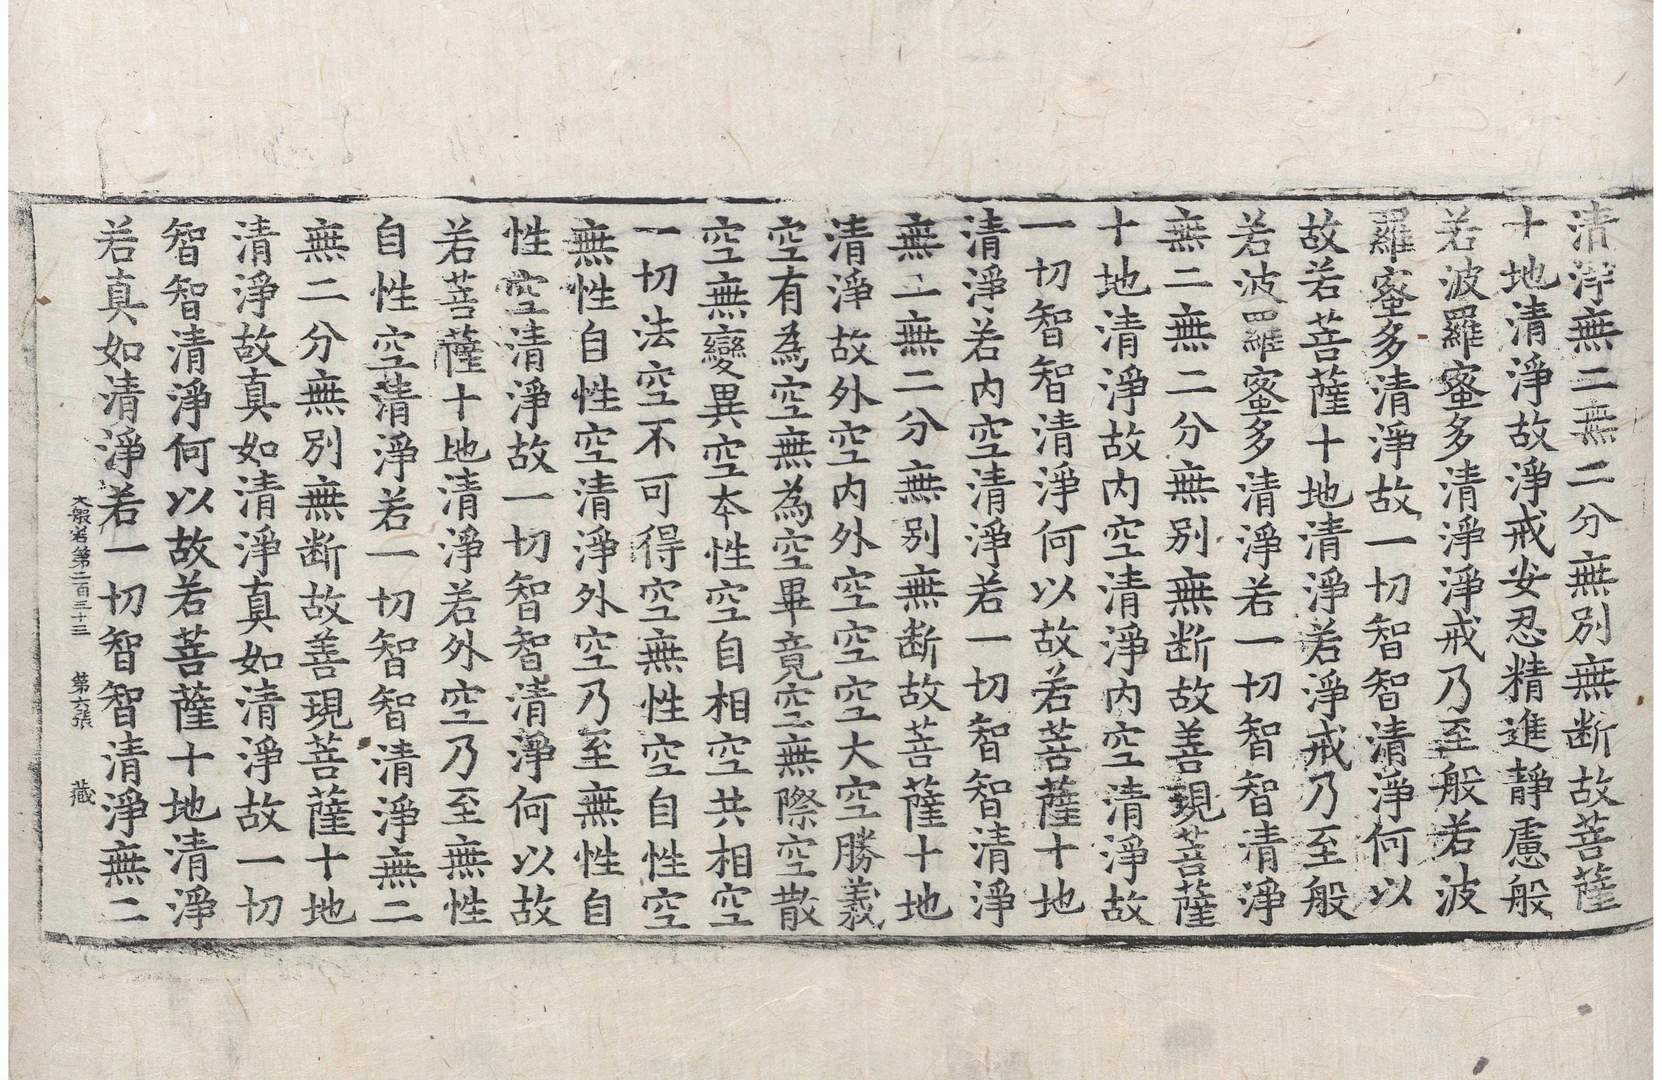 清淨無二無二分無別無断故菩薩
十地清淨故淨戒安忍精進靜慮般
若波羅蜜多清淨淨戒乃至般若波
羅蜜多清淨故一切智智清淨何以
故若菩薩十地清淨若淨戒乃至般
若波羅蜜多清淨若一切智智清淨
無二無二分無別無断故善現菩薩
十地清淨故內空清淨內空清淨故
一切智智清淨何以故若菩薩十地
清淨若內空清淨若一切智智清淨
無二無二分無別無断故菩薩十地
清淨故外空內外空空空大空勝義
空有為空無為空畢竟空無際空散
空無變異空本性空自相空共相空
一切法空不可得空無性空自性空
無性自性空清淨外空乃至無性自
性空清淨故一切智智清淨何以故
若菩薩十地清淨若外空乃至無性
自性空清淨若一切智智清淨無二
無二分無別無断故善現菩薩十地
清淨故真如清淨真如清淨故一切
智智清淨何以故若菩薩十地清淨
若真如清淨若一切智智清淨無二
大般若第二百三十三 第六張 藏